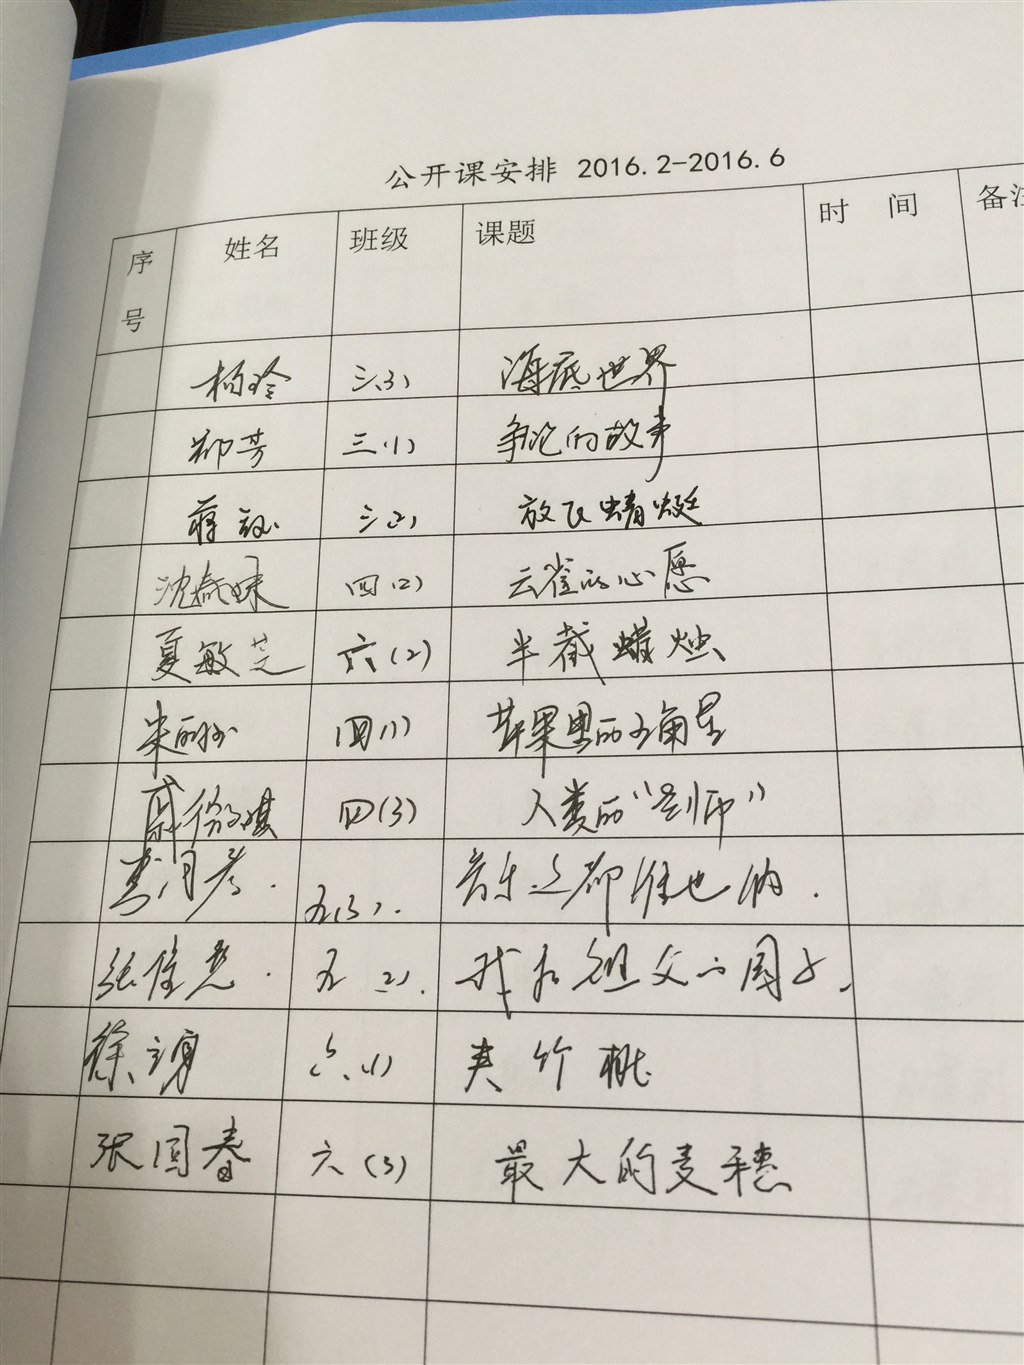 公开课安排 2016.2-2016.6
序号 姓名 班级 课题 时 间 备注
杨玲 三(3) 海底世界
柳芳 三(1) 争论的故事
蒋 三(2) 放飞蜻蜓
沈燕妹 四(2) 云雀的心愿
夏敏芝 六(2) 半截蜡烛
朱丽 四(1) 苹果里的五角星
四(3) 人类的“老师”
五(3). 音乐之都维也纳.
张 五(2). 我和祖父的园子.
徐 六(1) 夹竹桃
张国春 六(3) 最大的麦穗